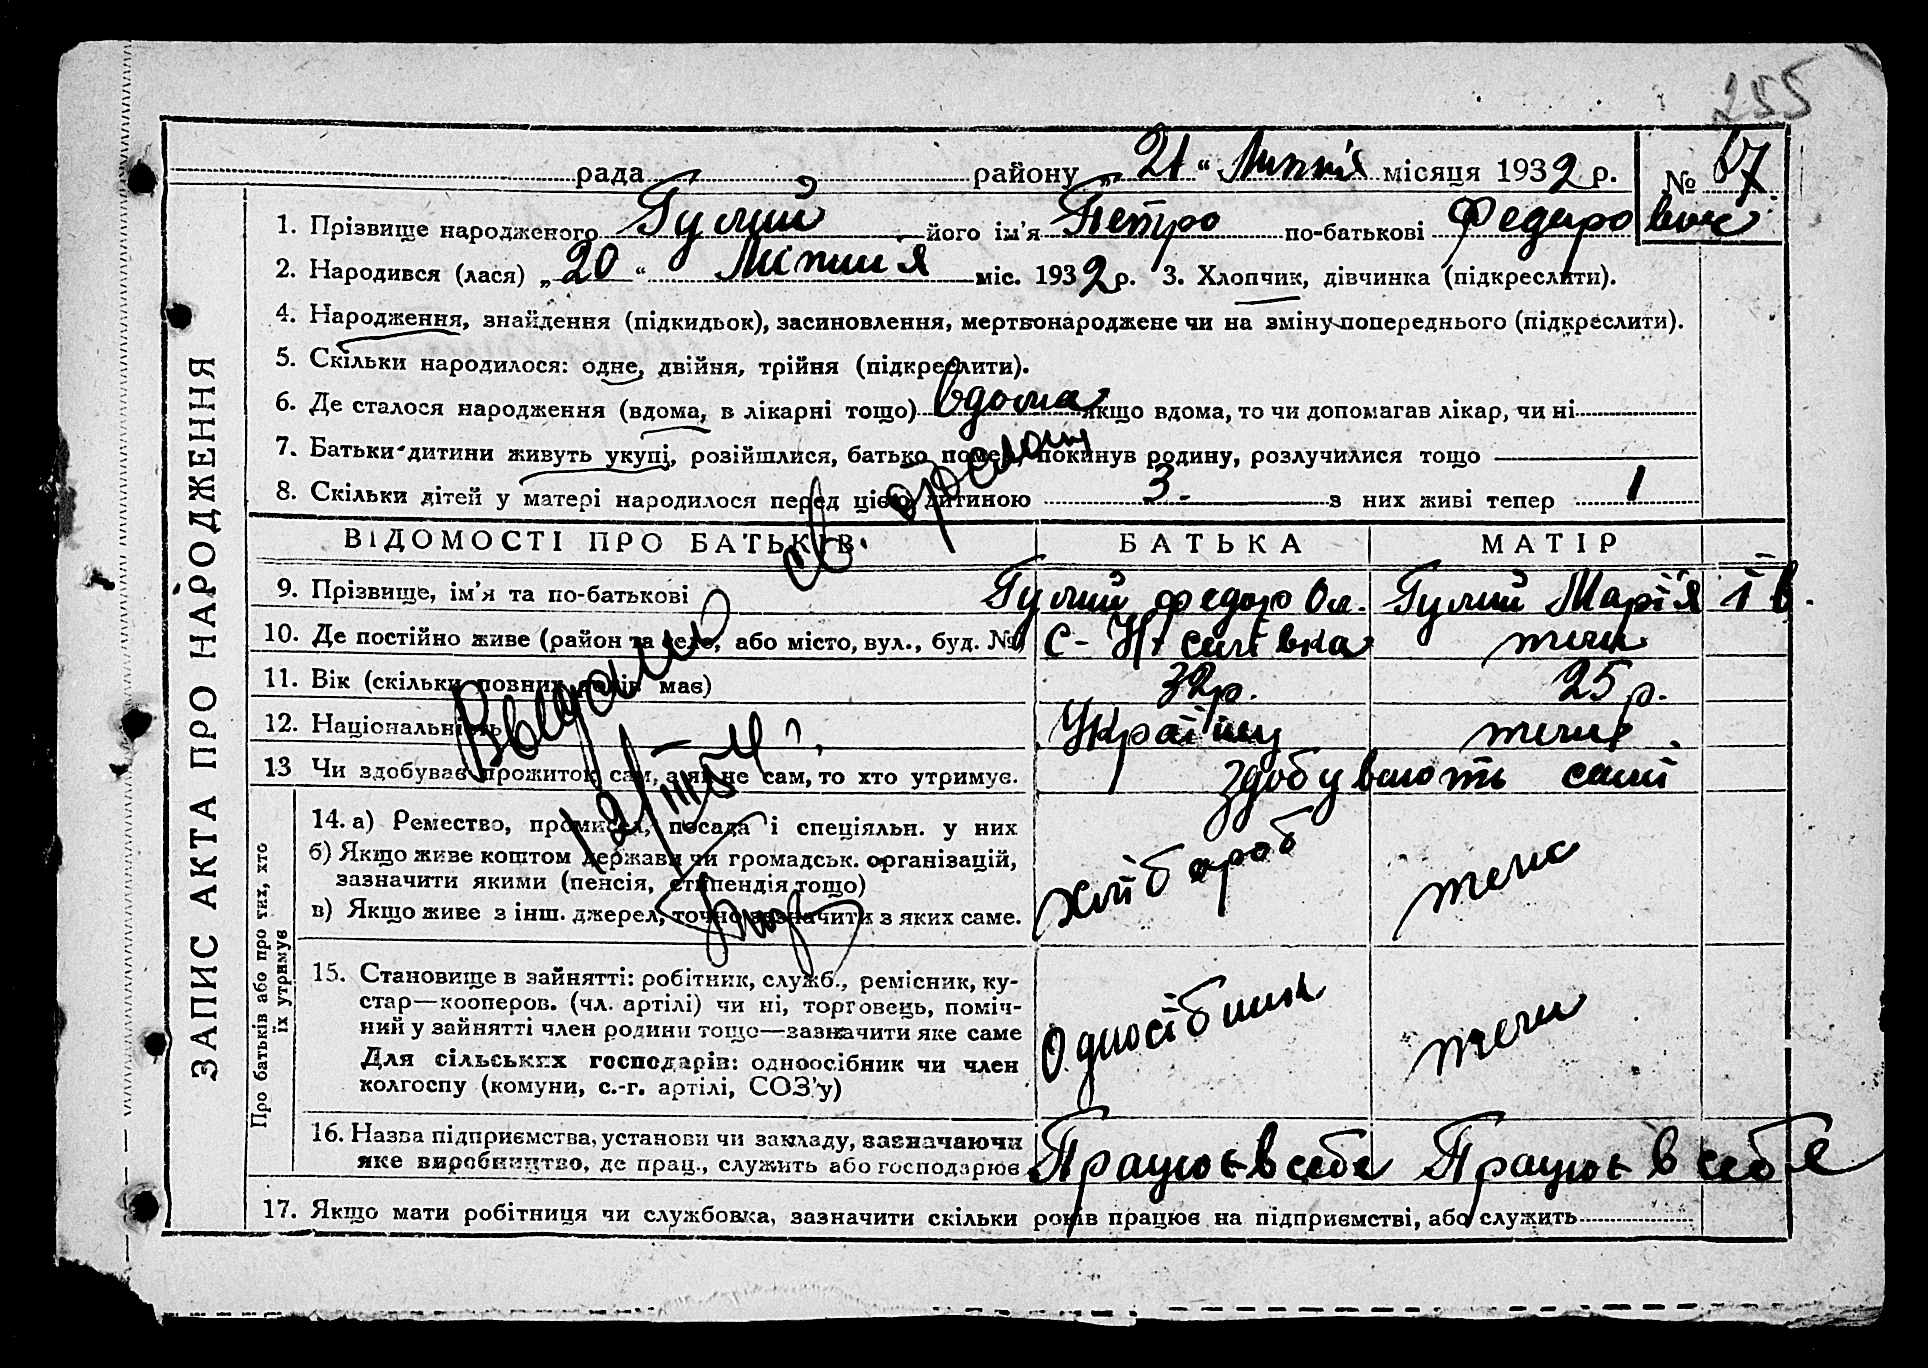 255
рада район​у „ 21 “ Липня місяця 1932 р. № 67
1. Прізвище народженого Гулий його ім'я Петро по-батькові Федоро вич
2. Народився (лася) „ 20 “ Липня міс. 1932 р. 3. Хлопчик, дівчинка (підкреслити).
4. Народження, знайдення (підкидьок), засиновлення, мертвонароджене чи на зміну попереднього (підкреслити).
5. Скільки народилося: одне, двійня, трійня (підкреслити).
6. Де сталося народження (вдома, в лікарні тощо) вдома якщо вдома, то чи допомагав лікар, чи ні
7. Батьки дитини живуть укупі, розійшлися, батько помер, покинув родину, розлучилися тощо
8. Скільки дітей у матері народилося перед цією дитиною 3. з них живі тепер 1
ВІДОМОСТІ ПРО БАТЬКІВ БАТЬКА МАТІР
9. Прізвище, ім'я та по-батькові Гулий Федор Ол. Гулий Марія І в.
10. Де постійно живе (район та село, або місто, вул., буд. № с-
11. Вік (скільки повних років має) 32 р. 25 р.
12. Національність
13 Чи здобуває прожиток сам, а як не сам, то хто утримує. здобувають самі
14. а) Ремество, промисел, посада і спеціяльн. у них хлібороб
б) Якщо живе коштом держави чи громадськ. організацій,
зазначити якими (пенсія, стипендія тощо)
в) Якщо живе з інш. джерел, точно зазначити з яких саме.
15. Становище в зайнятті: робітник, служб., ремісник, ку-
стар—кооперов. (чл. артілі) чи ні, торговець, поміч-
ний у зайнятті член родини тощо—зазначити яке саме
Для сільських господарів: одноосібник чи член
колгоспу (комуни, с.-г. артілі, СОЗ'у)
Односібник
16. Назва підприємства, установи чи закладу, зазначаючи
яке виробництво, де прац., служить або господарює
Працює в себе Працює в себе
17. Якщо мати робітниця чи службовка, зазначити скільки років працює на підприємстві, або служить
ЗАПИС АКТА ПРО НАРОДЖЕННЯ
Про батьків або про тих, хто
їх утримує
Выдано св
12/III 54 г.